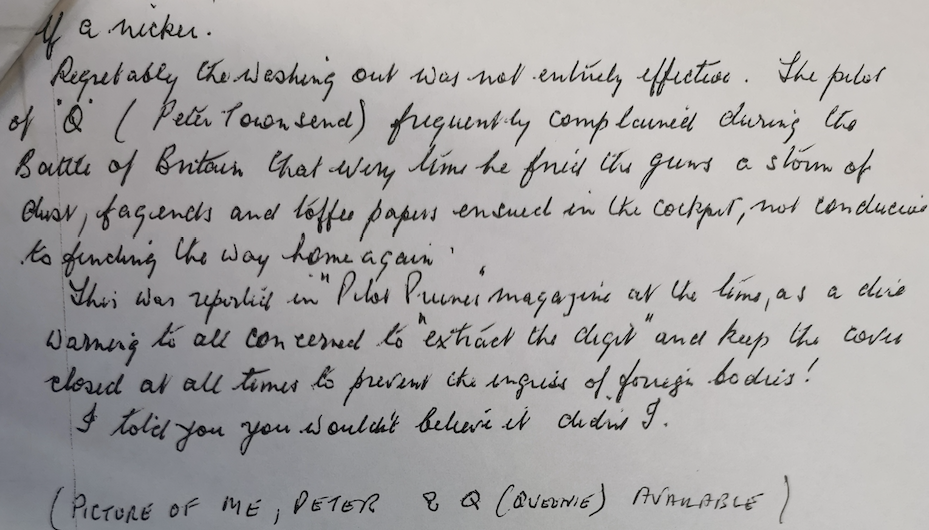 of a nicker.
Regretably the washing out was not entirely effective. The pilot
of "Q" ( Peter Townsend) frequently complained during the
Battle of Britain that every time he fired the guns a storm of
dust, fagends and toffee papers ensued in the cockpit, not conducive
to finding the way home again'
This was reported in "Pilot Prunes" magazine at the time, as a dire
warning to all concerned to "extract the digit" and keep the cover
closed at all times to prevent the ingress of foreign bodies!
I told you you wouldn't believe it didn't I.
(PICTURE OF ME, PETER & Q (QUEENIE) AVAILABLE)